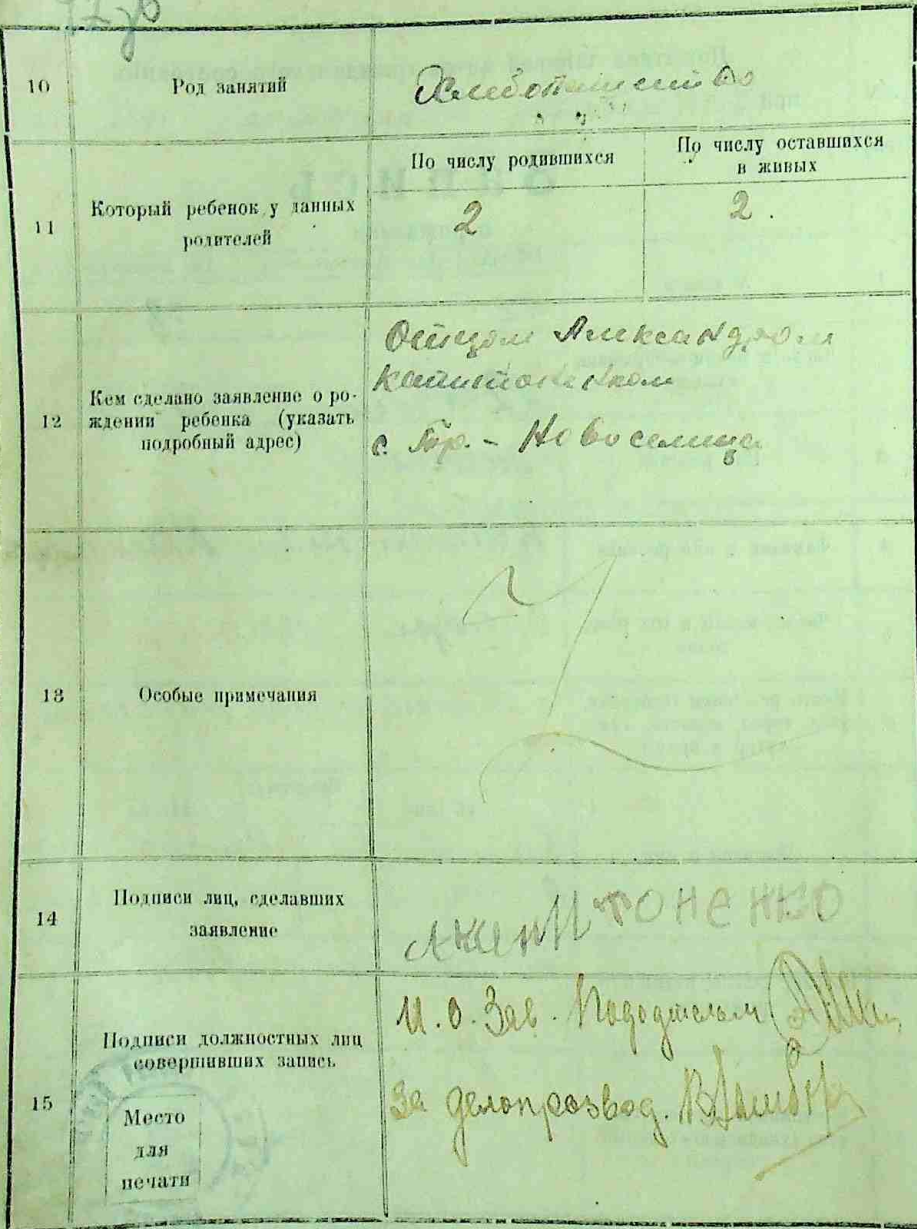 10
Род занятий
Хлебопашество
11
Который ребенок у данных
родителей
По числу родившихся
2
По числу оставшихся
в живых
2.
12
Кем сделано заявление о ро-
ждении ребенка (указать
подробный адрес)
Отцом Александром
Капитоненком
с. Тр. - Новоселица
13
Особые примечания
14
Подписи лиц, сделавших
заявление
15
Подписи должностных лиц
совершивших запись
Место
для
печати
И.О. Зав. Пододделом
За делопрозвод.